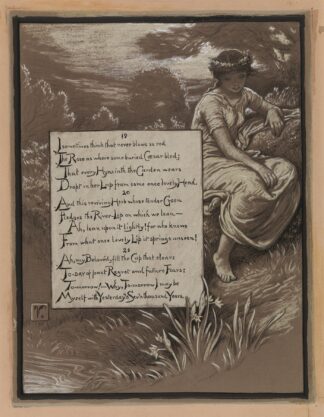 19
I sometimes think that never blows so red
The Rose as where some buried Cæsar bled;
That every Hyacinth the Garden wears
Dropt in her Lap from some once lovely Head.
20
And this reviving Herb whose tender Green
Fledges the River-Lip on which we lean—
Ah, lean upon it lightly! for who knows
From what once lovely Lip it springs unseen!
21
Ah, my Beloved, fill the Cup that clears
To-day of past Regret and future Fears:
To-morrow!—Why, To-morrow I may be
Myself with Yesterday's Sev'n thousand Years.
V.